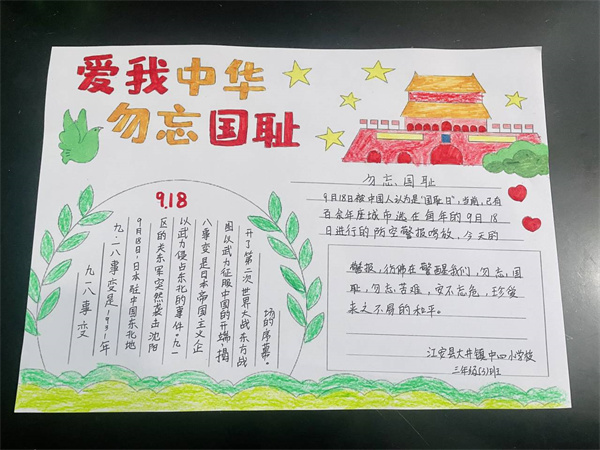 爱我中华
勿忘国耻
9.18
九一八事变
九·一八事变是1931年
9月18日,日本驻中国东北地
区的关东军突然袭击沈阳
以武力侵占东北的事件。九一
八事变是日本帝国主义企
图以武力征服中国的开端,揭
开了第二次世界大战东方战
场的序幕。
勿忘国耻
9月18日被中国人认为是“国耻日”,当前,已有
百余年座城市选在每年的9月18
日进行的防空警报鸣放,今天的
警报,彷佛在警醒我们,勿忘国
耻,勿忘苦难,安不忘危,珍爱
来之不易的和平。
江安县大井镇中心小学校
三年级(3)班